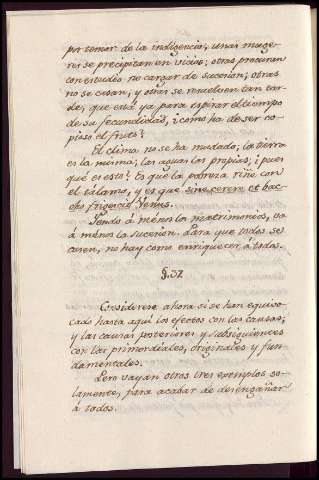 por temor de la indigencia; unas muge-
res se precipitan en vicios; otras procuran
con estudio no cargar de sucesion; otras
no se casan; y otras se resuelven tan tar-
de, que está ya para espirar el tiempo
de su fecundidad; ¿como ha de ser co-
pioso el fruto?
El clima no se ha mudado; la tierra
es la misma; las aguas las propias; ¿pues
qué es esto? Es que la pobreza riñe con
el tálamo, y es que sine cerere et bac-
cho frigescit Venus.
Yendo á ménos los matrimonios, va
á ménos la sucesion. Para que todos se
casen, no hay como enriquecer á todos.
§.37
Considerese ahora si se han equivo-
cado hasta aquí los efectos con las causas;
y las causas posteriores y subsiguientes
con las primordiales, originales y fun-
damentales.
Pero vayan otros tres exemplos so-
lamente, para acabar de desengañar
á todos.